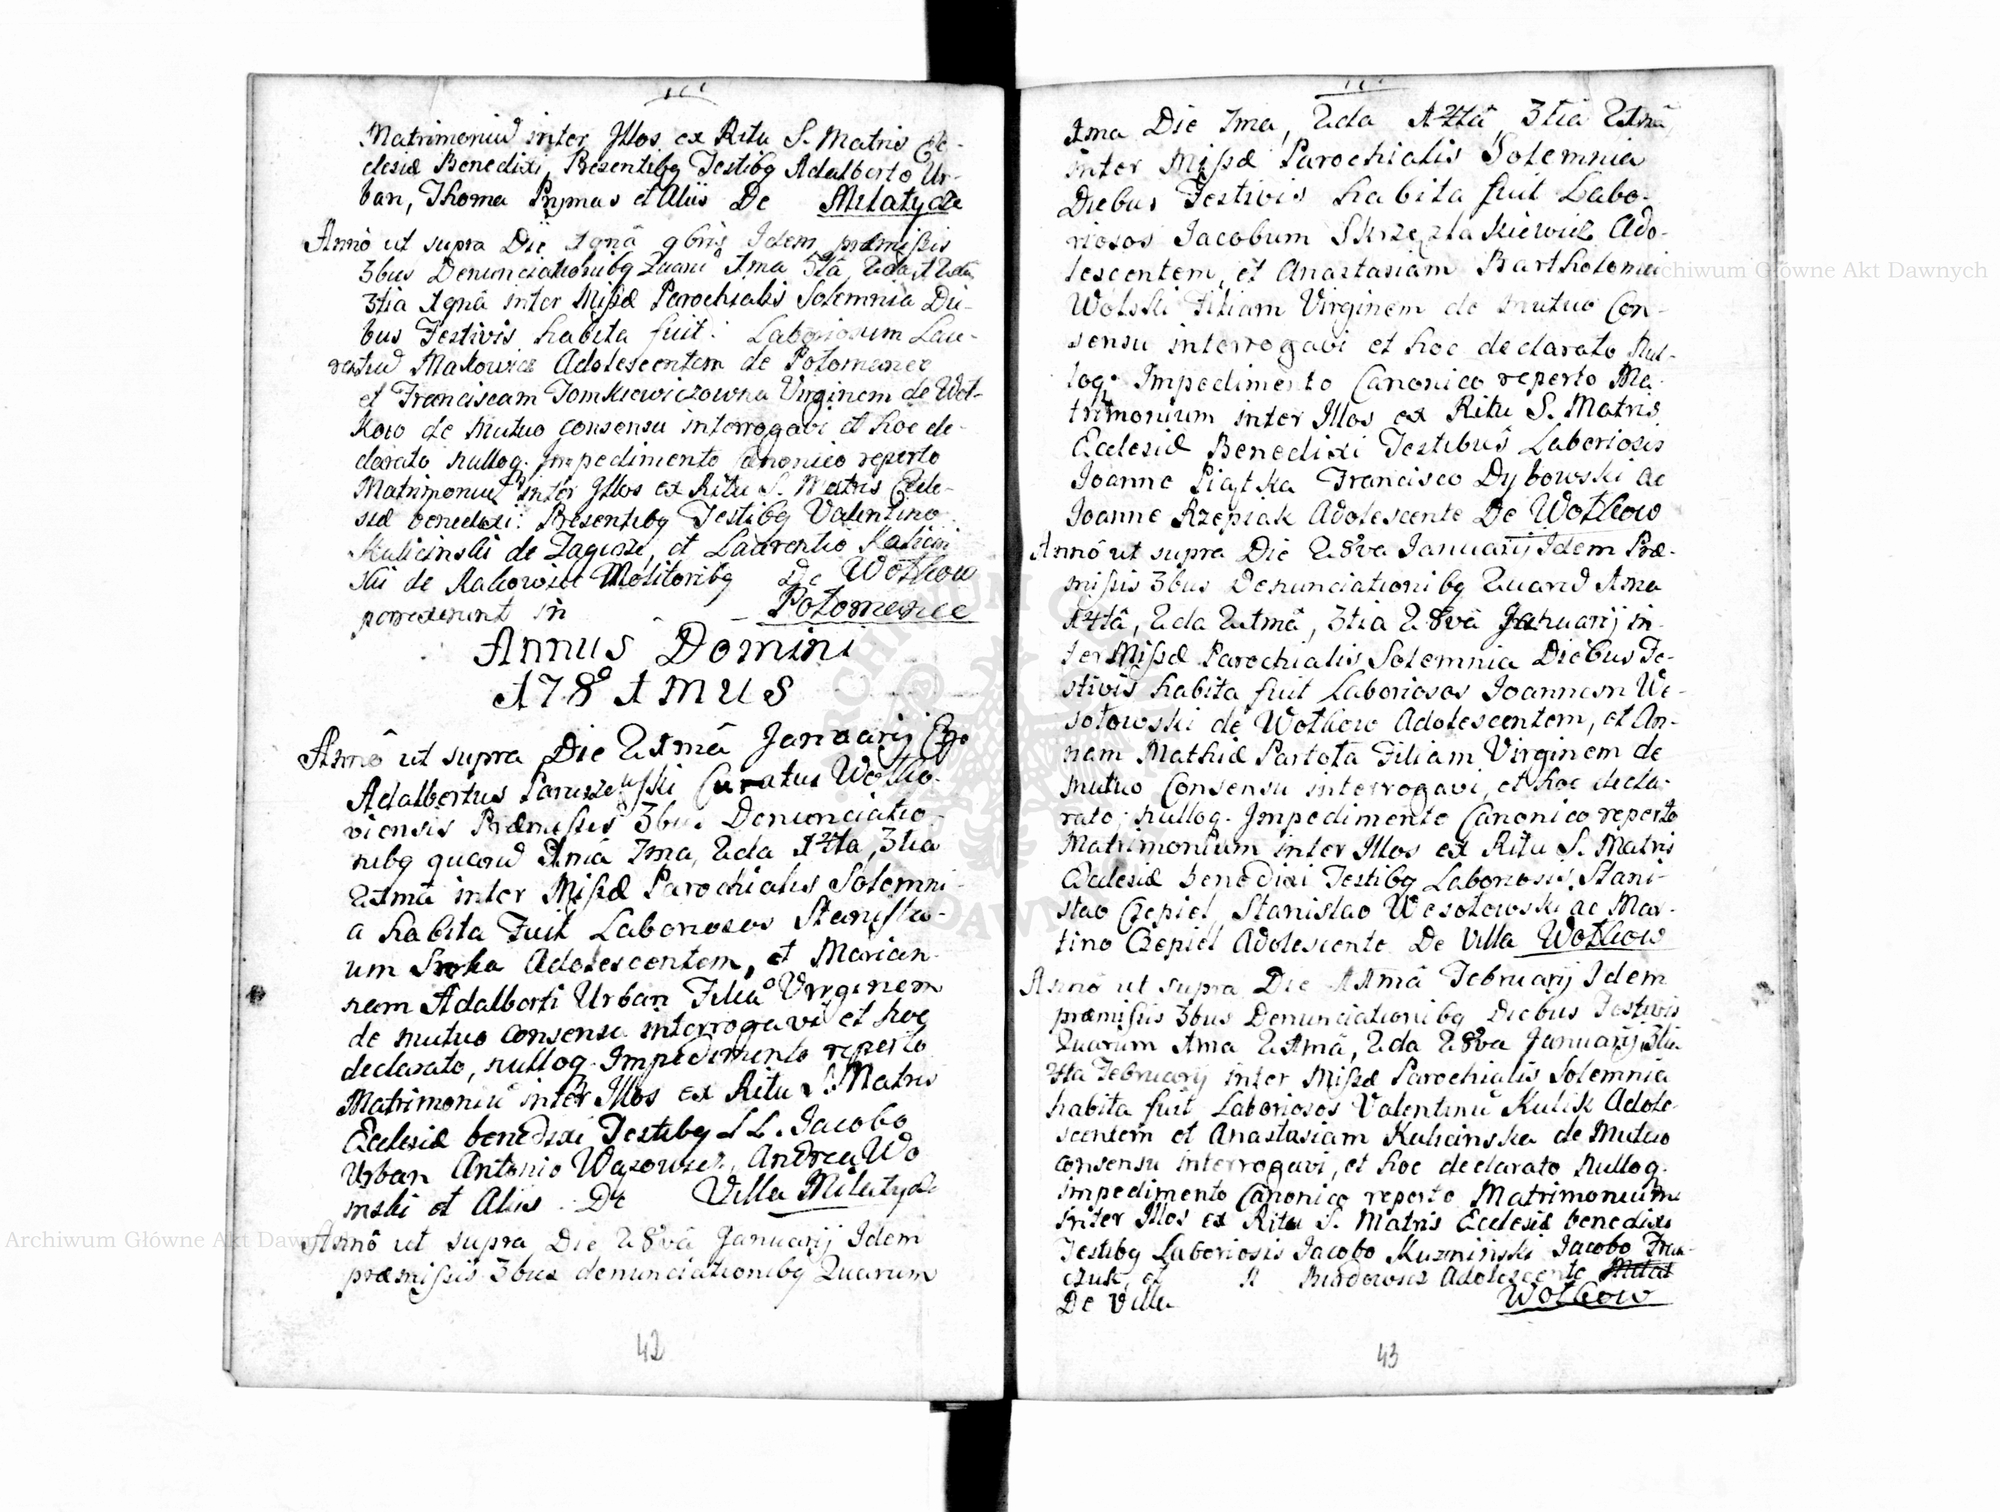 Matrimoniū inter Illos ex Ritu S. Matris Ec-
clesiæ Benedixi, Præsentibq Testibq Adalberto Ur-
ban, Thoma Prymus et Aliis De Milatycze
Annô ut supra Die 19nâ 9bris Idem præmissis
3bus Denunciationibq Quarū 1ma 5tâ, 2da 12dâ
3tia 19nâ inter Missæ Parochialis Solemnia Die-
bus Festivis habita fuit: Laboriosum Lau-
rentiū Makowicz Adolescentem de Połomenec
et Franciscam Tomkiewiczowna Virginem de Woł-
kow de Mutuo consensu interrogavi et hoc de-
clarato nulloq. Impedimento Canonico reperto
Matrimoniū inter Illos ex Ritu S. Matris Eccle-
siæ benedixi: Præsentibq Testibq Valentino
Kulicinski de Zagurze, et Laurentio Kulicin
ski de Rakowiec Molitoribq De Wołkow
porrexerunt in Połomenec
Annus Domini
1781mus
Annô ut supra Die 21mâ Januarij Ego
Adalbertus Paruszewski Curatus Wołko-
viensis Præmissis 3bus Denunciatio-
nibq quarū 1mâ 7ma, 2da 14ta, 3tia
21mâ inter Missæ Parochialis Solemni-
a habita Fuit Laboriosos Stanisla-
um Sroka Adolescentem, et Marian-
nam Adalberti Urban Filiā Virginem
de mutuo consensu interrogavi et hoc
declarato, nulloq. Impedimento reperto
Matrimoniū inter Illos ex Ritu S. Matris
Ecclesiæ benedixi Testibq LL. Jacobo
Urban Antonio Wąsowicz, Andrea Wo
inski et Aliis. De Villa Milatycze
Annô ut supra Die 28vâ Januarij Idem
præmissis 3bus denunciationibq Quarum
42
1ma Die 7ma, 2da 14tâ, 3tia 21mâ,
inter Missæ Parochialis Solemnia
Diebus Festivis habita fuit Labo-
riosos Jacobum Skrzęztakiewicz Ado-
lescentem, et Anastasiam Bartholomei
Wolski Filiam Virginem de mutuo Con-
sensu interrogavi et hoc declarato Nul-
loq. Impedimento Canonico reperto Ma-
trimonium inter Illos ex Ritu S. Matris
Ecclesiæ Benedixi Testibus Laboriosis
Joanne Piątka Francisco Dybowski ac
Joanne Rzepiak Adolescente De Wołkow
Annô ut supra Die 28va Januarij Idem Præ-
missis 3bus Denunciationibq Quarū 1ma
14tâ, 2da 21mâ, 3tia 28vâ Januarij in-
ter Missæ Parochialis Solemnia Diebus Fe-
stivis habita fuit Laboriosos Joannem We-
sołowski de Wołkow Adolescentem, et An-
nam Mathiæ Partoła Filiam Virginem de
mutuo Consensu interrogavi, et hoc decla-
rato, nulloq. Impedimento Canonico reperto
Matrimonium inter Illos ex Ritu S. Matris
Ecclesiæ benedixi Testibq Laboriosis, Stani-
slao Czepiel, Stanislao Wesołowski ac Mar-
tino Czepiel Adolescente De Villa Wołkow
Annô ut supra Die 11mâ Februarij Idem
præmissis 3bus Denunciationibq Diebus Festivis
Quarum 1ma 21mâ, 2da 28va Januarij, 3tia
4ta Februarij inter Missæ Parochialis Solemnia
habita fuit Laboriosos Valentinū Kulik Adole-
scentem et Anastasiam Kulicinska de Mutuo
consensu interrogavi, et hoc declarato nulloq.
impedimento Canonico reperto Matrimonium
inter Illos ex Ritu S. Matris Ecclesiæ benedixi
Testibq Laboriosis Jacobo Kuzmiński Jacobo Fran-
czuk, et Burdowicz Adolescente
De Villa Wołkow
43
Archiwum Główne Akt Dawnych
Archiwum Główne Akt Dawnych